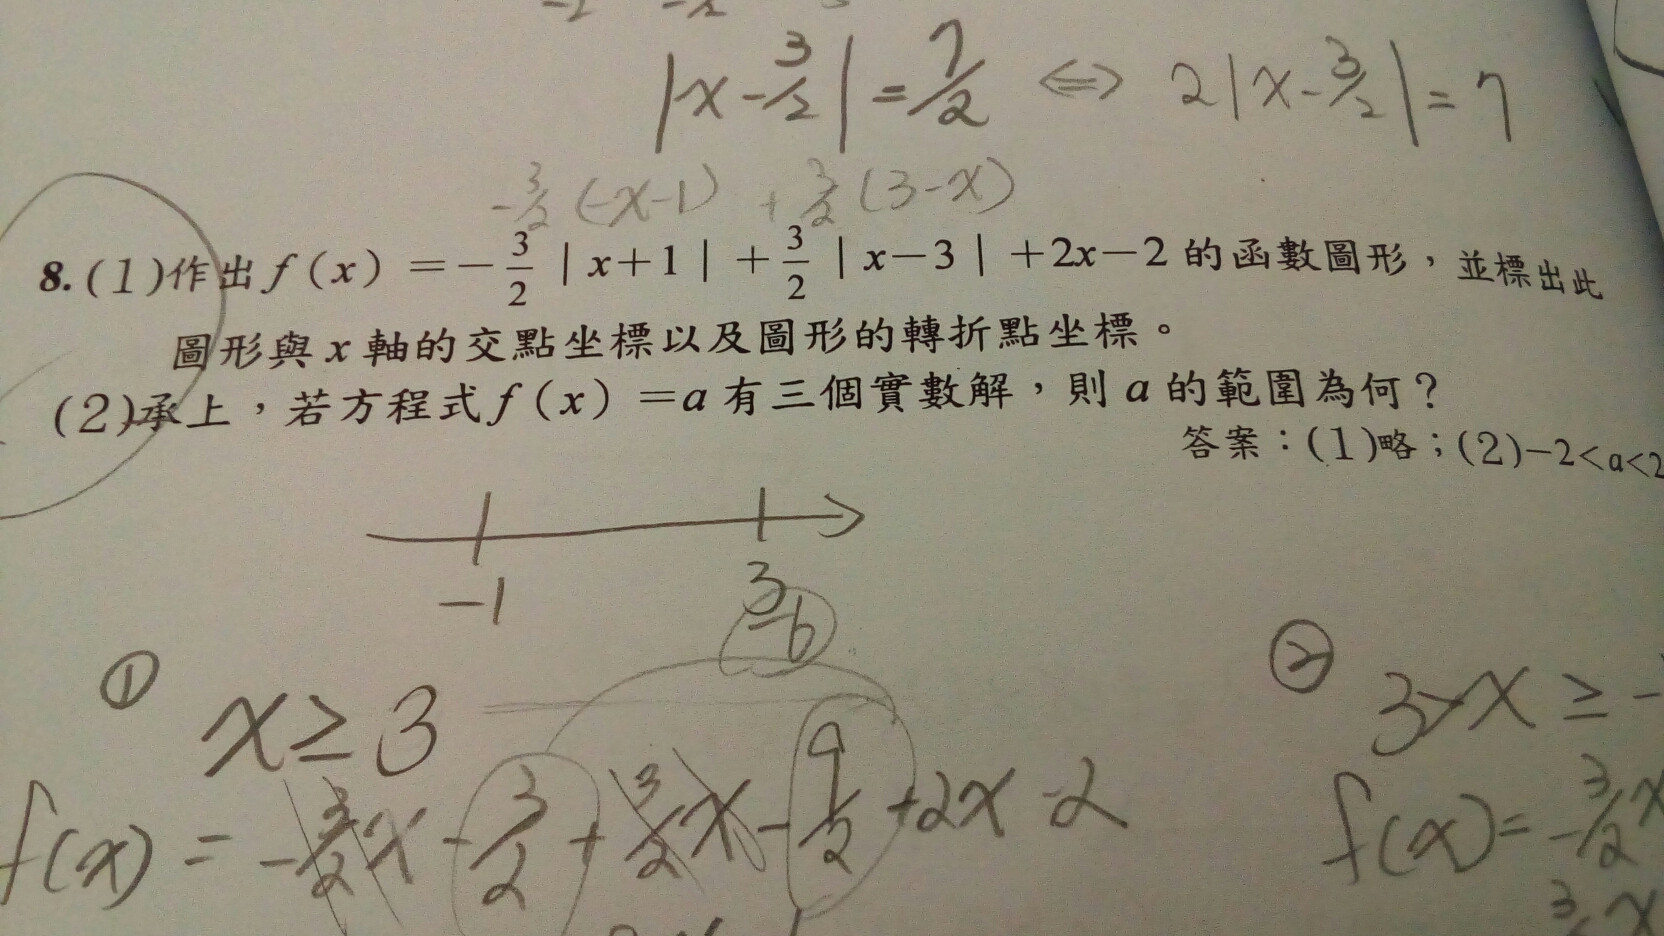 |x-3/2|=7/2 ⇔ 2|x-3/2|=7
-3/2(-x-1) +3/2(3-x)
8.(1)作出f(x)=-3/2|x+1|+3/2|x-3|+2x-2的函數圖形，並標出此
圖形與x軸的交點坐標以及圖形的轉折點坐標。
(2)承上，若方程式f(x)=a有三個實數解，則a的範圍為何？
答案：(1)略；(2)-2<a<2
-1 3
-6
① x≥3
② 3>x≥-
f(x)=-3/2x-3/2+3/2x-9/2+2x-2
f(x)=-3/2x